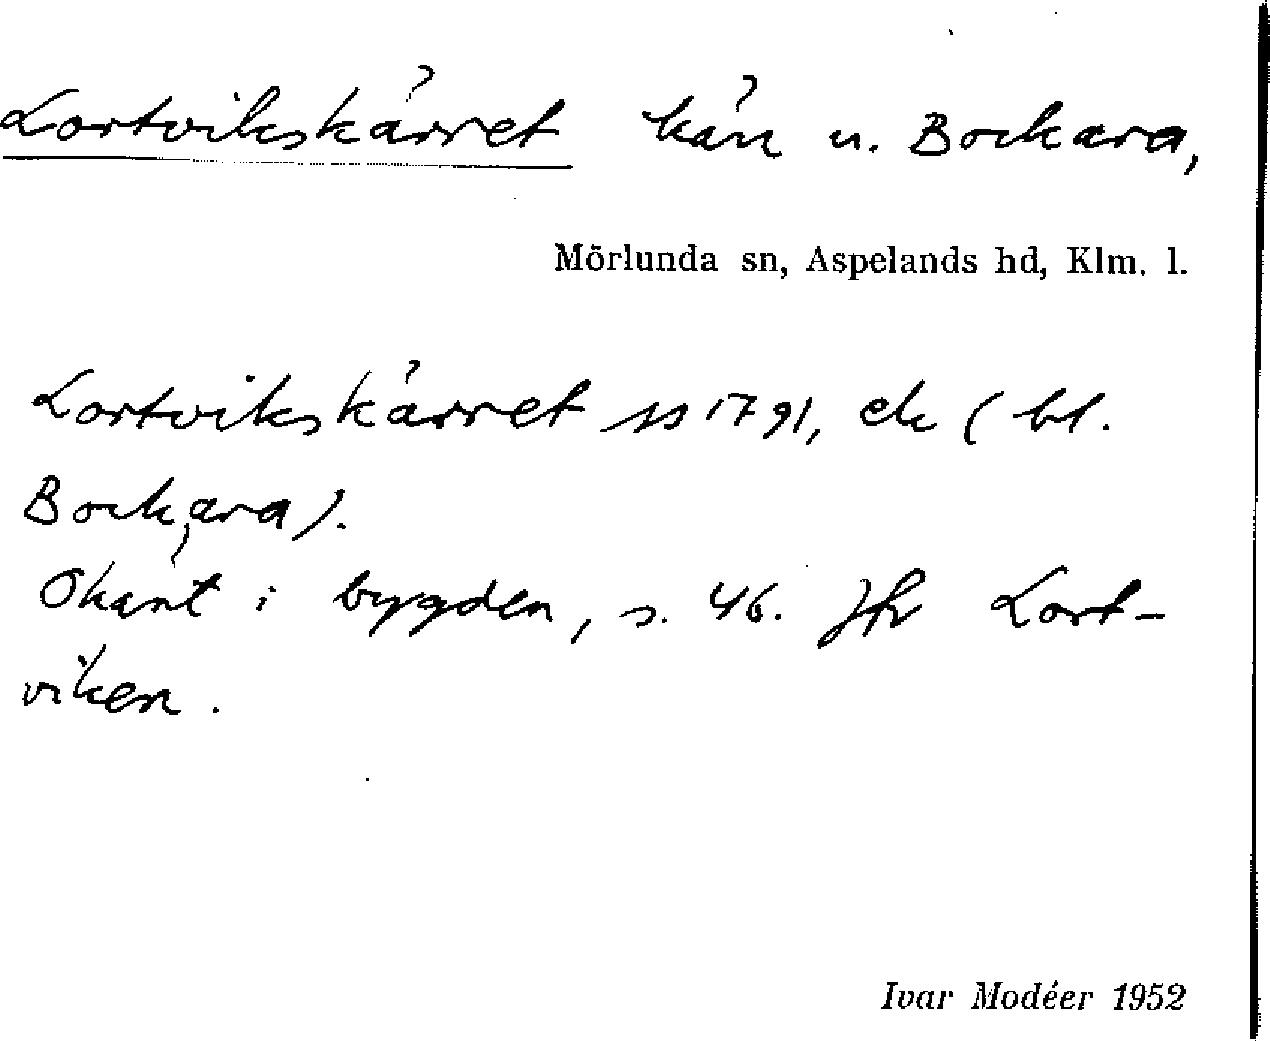 Lortvikskärret kärr u. Bockara,
Mörlunda sn, Aspelands hd, Klm. l.
Lortvikskärret ss 1791, ek (bl.
Bockara).
Okänt i bygden, s. 46. Jfr Lort-
viken.
Ivar Modéer 1952